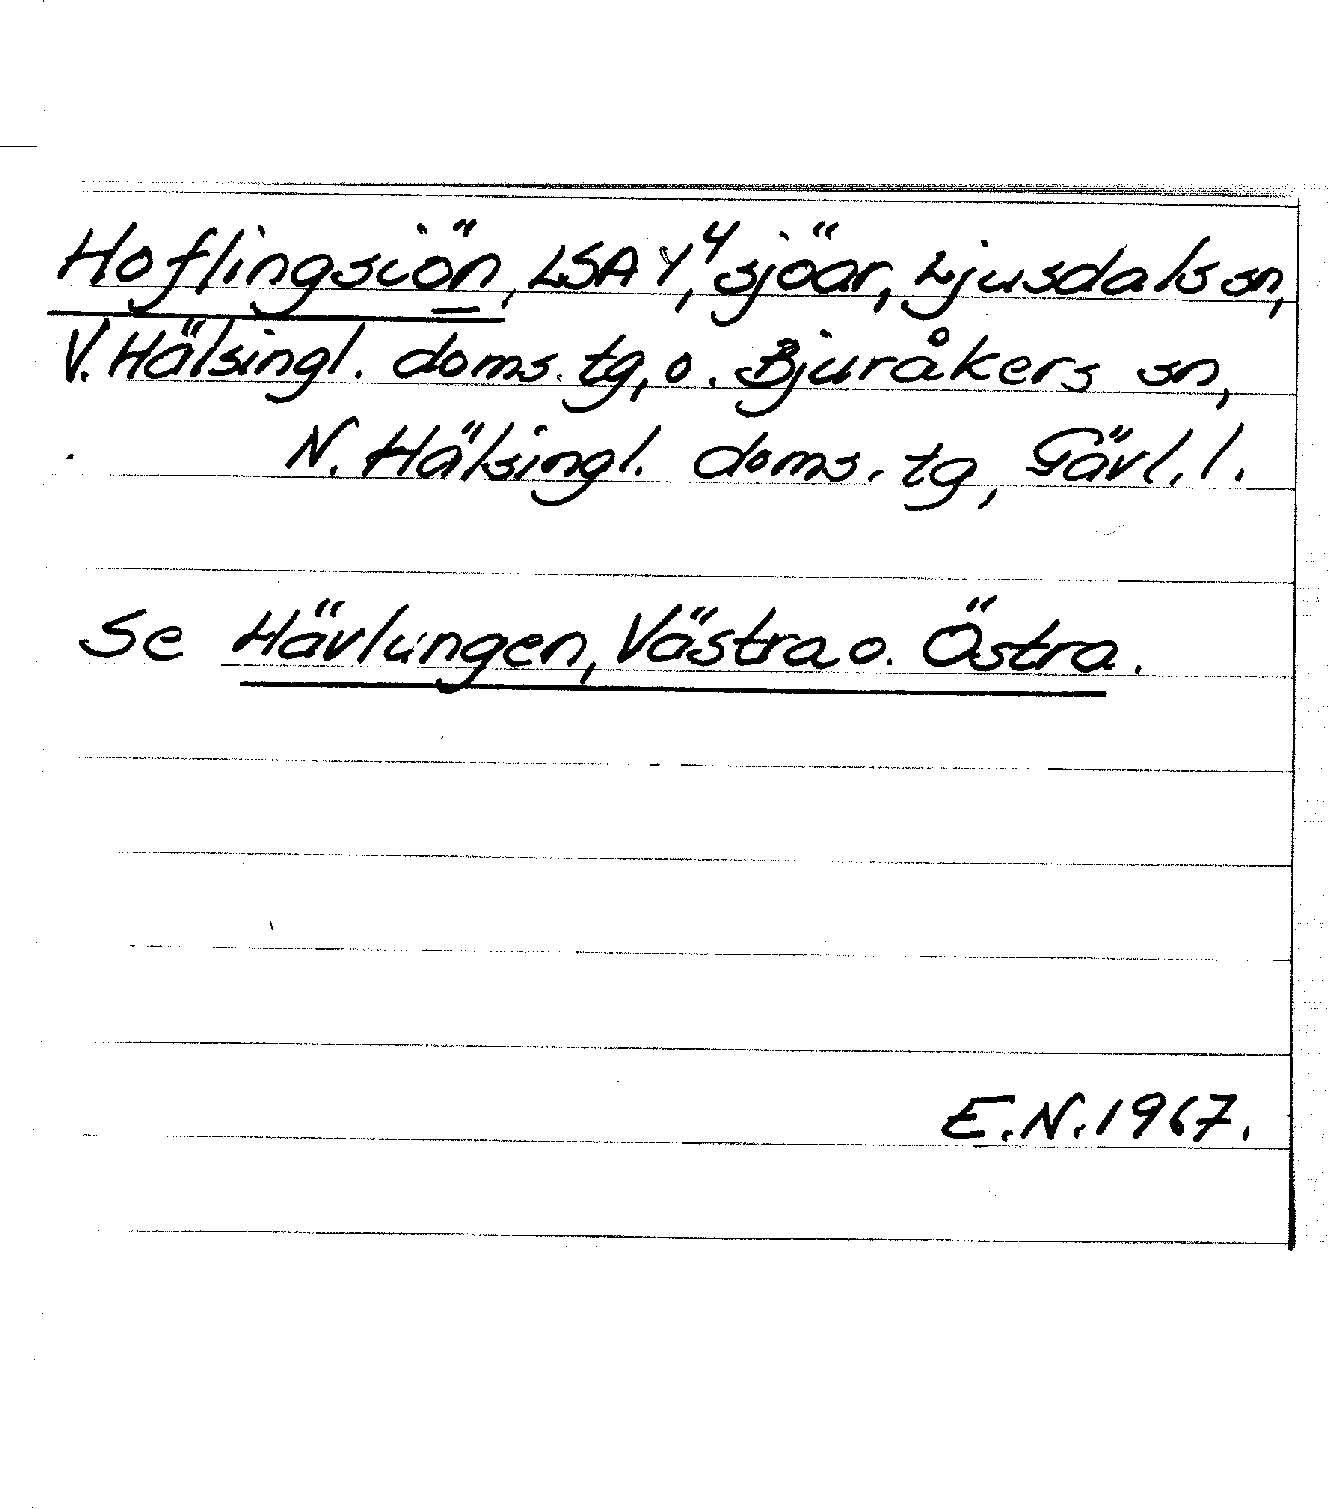 Hoflingsiön, LSA Y⁴, sjöar, Ljusdals sn,
V. Hälsingl. doms. tg, o. Bjuråkers sn,
N. Hälsingl. doms. tg, Gävl. l.
Se Hävlungen, Västra o. Östra.
E.N. 1967.